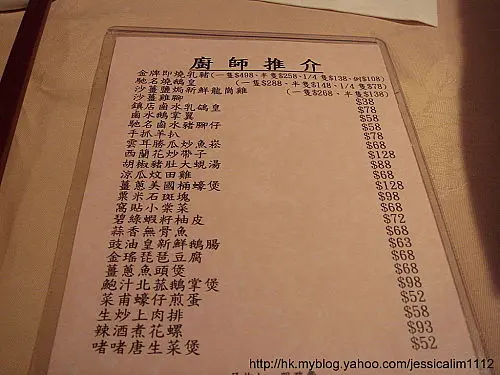 廚師推介
金牌即燒乳豬(一隻$498、半隻$258、1/4隻$138、例$108)
馳名燒鵝皇 (一隻$288、半隻$148、1/4隻$78)
沙薑鹽焗新鮮龍崗雞 (一隻$268、半隻$138)
沙薑雞腳 $38
鎮店鹵水乳鴿皇 $78
鹵水鵝掌翼 $58
馳名鹵水豬腳仔 $58
手抓羊扒 $78
雲耳勝瓜炒魚崧 $68
西蘭花炒帶子 $128
胡椒豬肚大蜆湯 $88
涼瓜炆田雞 $68
薑蔥美國桶蠔煲 $128
粟米石斑塊 $98
窩貼小棠菜 $68
碧綠蝦籽柚皮 $72
蒜香無骨魚 $68
豉油皇新鮮鵝腸 $63
金瑤琵琶豆腐 $68
薑蔥魚頭煲 $68
鮑汁北菰鵝掌煲 $98
菜甫蠔仔煎蛋 $52
生炒上肉排 $58
辣酒煮花螺 $93
啫啫唐生菜煲 $52
http://hk.myblog.yahoo.com/jessicalim1112